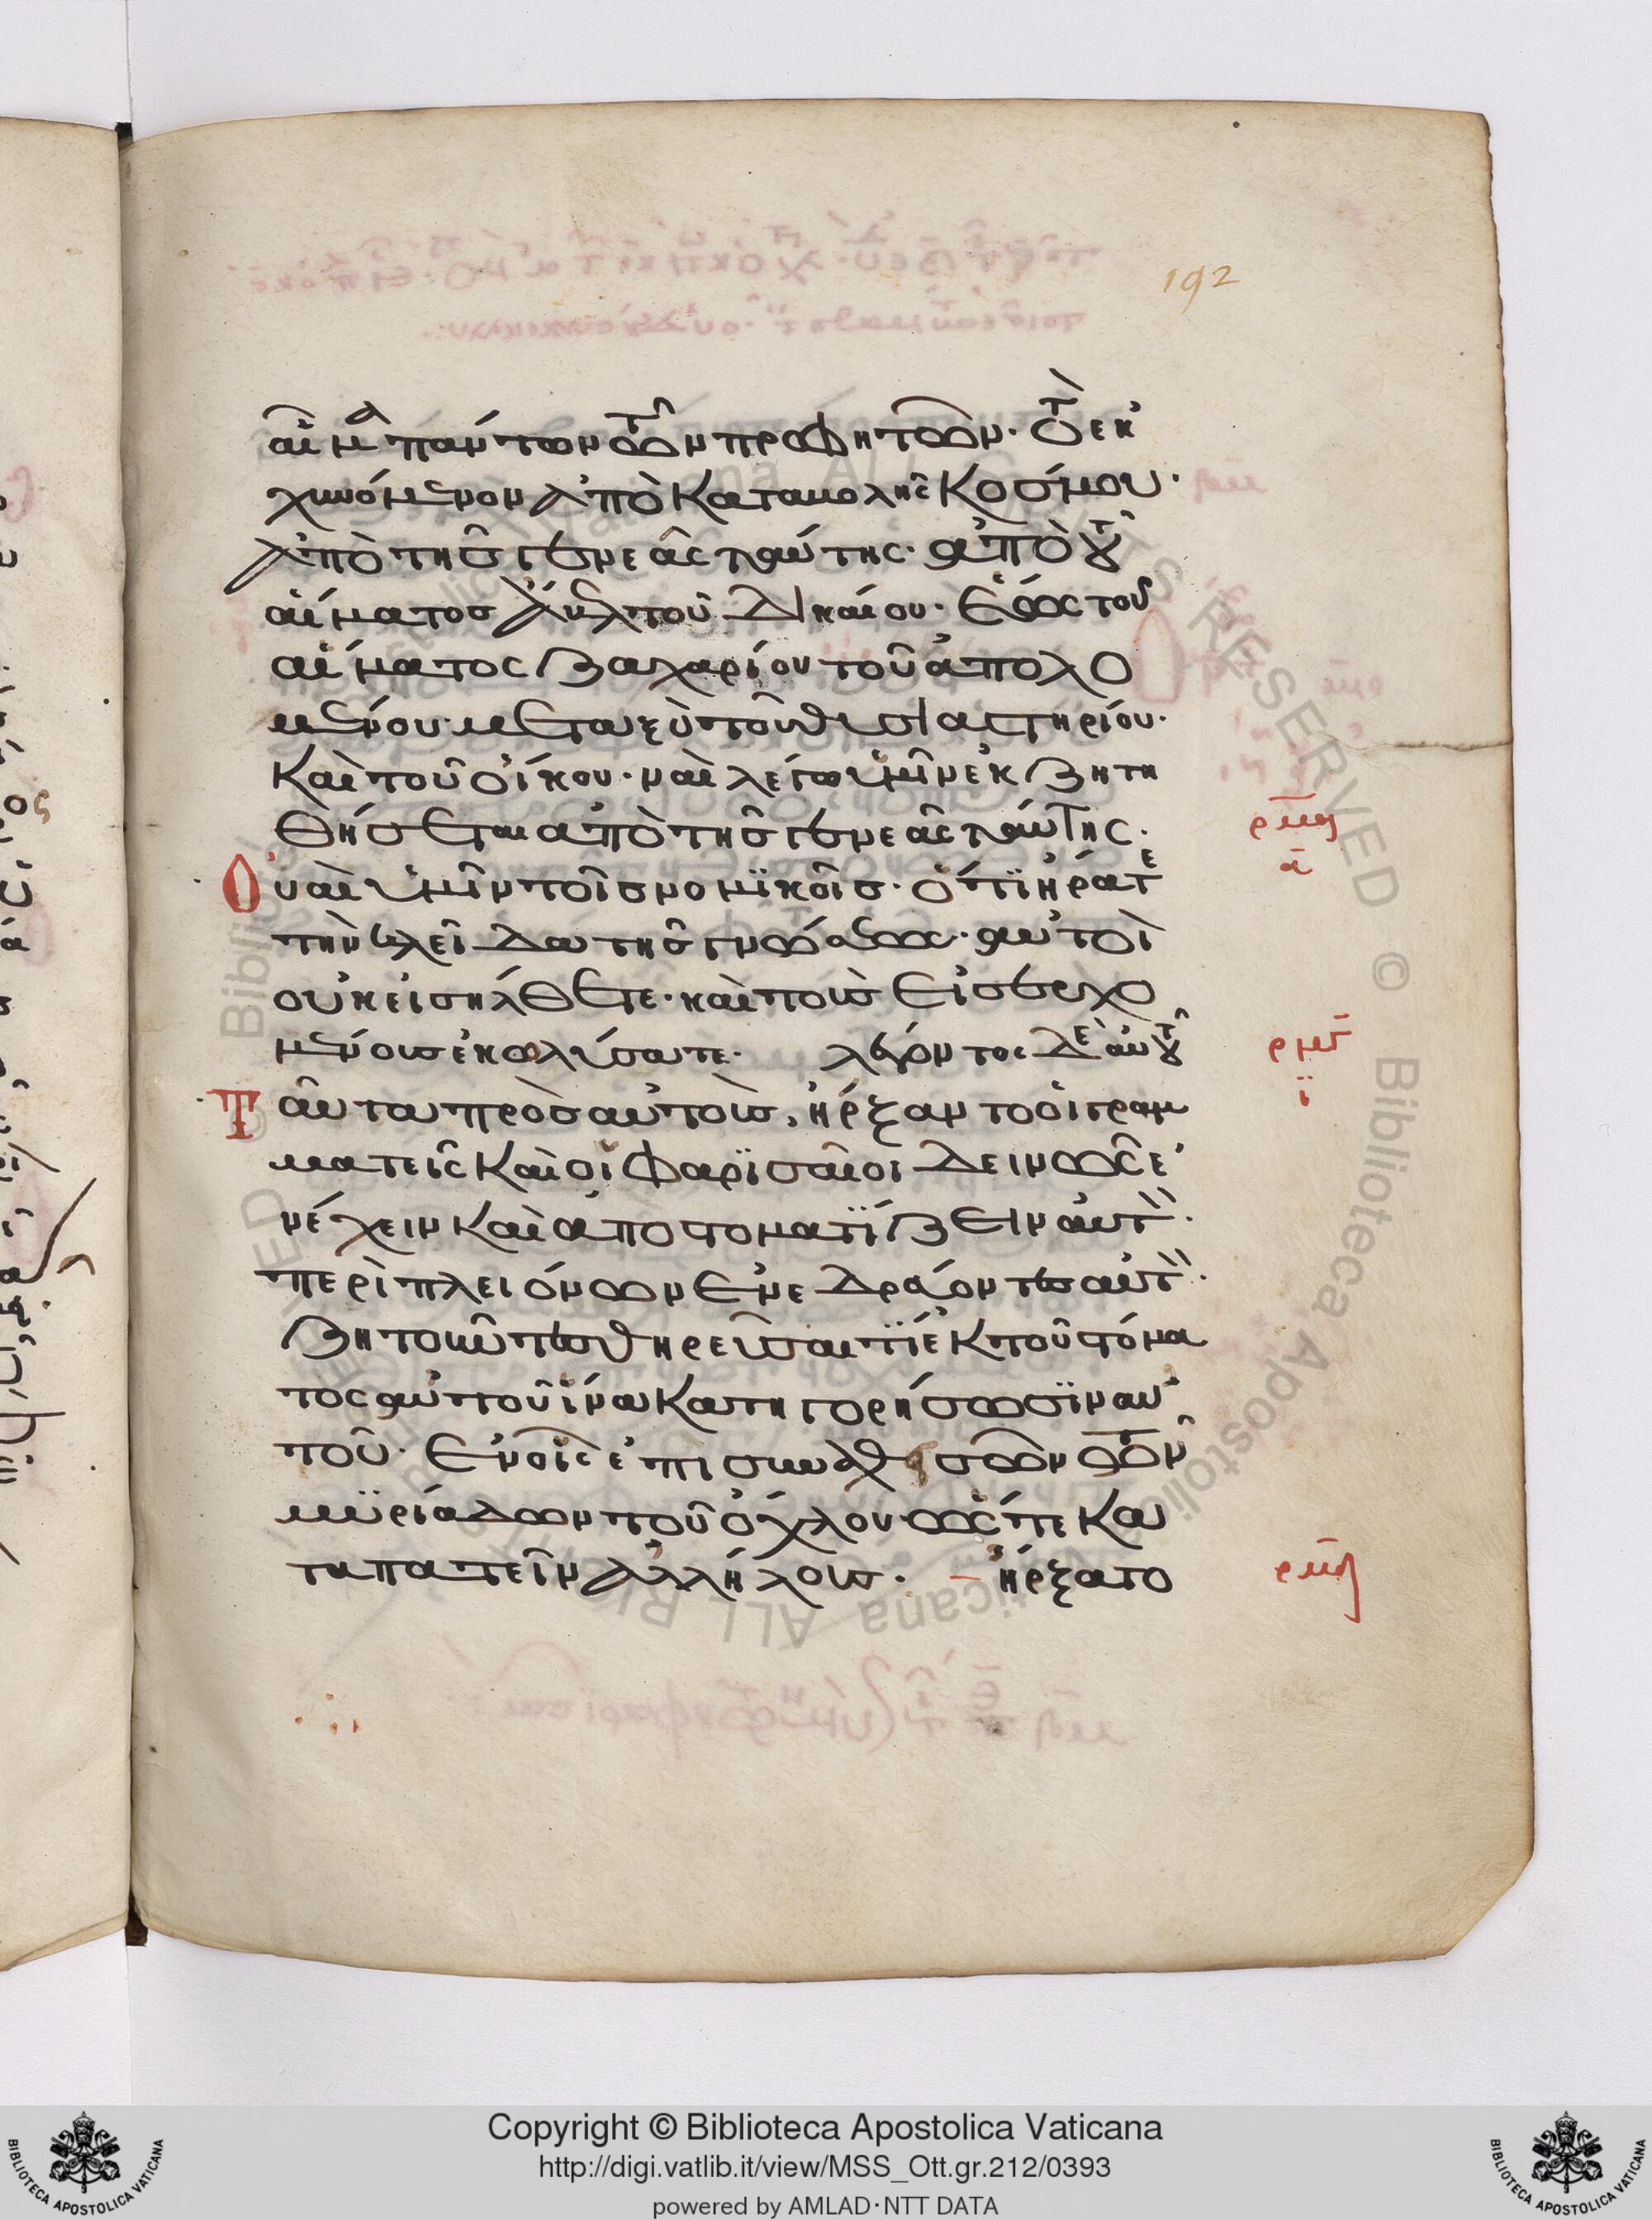 192
αἷμα πάντων τῶν προφητῶν· τὸ ἐκ
χυνόμενον ἀπὸ καταβολῆς κόσμου·
ἀπὸ τῆς γενεᾶς ταύτης· ἀπὸ τοῦ
αἵματος ἄβελ τοῦ δικαίου· ἕως τοῦ
αἵματος ζαχαρίου τοῦ ἀπολο
μένου· μεταξὺ τοῦ θυσιαστηρίου·
καὶ τοῦ οἴκου· ναὶ λέγω ὑμῖν ἐκζητη
θήσεται ἀπὸ τῆς γενεᾶς ταύτης·
Οὐαὶ ὑμῖν τοῖς νομϊκοῖς· ὅτϊ ἤρατε
τὴν κλεῖδα τῆς γνώσεως· αὐτοὶ
οὐκ εἰσήλθετε· καὶ τοὺς εἰσερχο
μένους ἐκωλύσατε· λέγοντος δὲ αὐτοῦ
Ταῦτα πρὸς αὐτοὺς, ἤρξαντο οἱ γραμ
ματεῖς καὶ οἱ φαρϊσαῖοι δεινῶς ἐ
νέχειν καὶ ἀποστοματϊίζειν αὐτὸν·
περὶ πλειόνων ἐνεδρεύοντες αὐτὸν·
ζητοῦντες θηρεῦσαι τϊ ἐκ τοῦ στόμα
τος αὐτοῦ ἵνα κατηγορήσωσϊν αὐ
τοῦ· Ἐν οἷς ἐπισυναχθεισῶν τῶν
μϋριάδων τοῦ ὄχλου· ὥστε κα
ταπατεῖν ἀλλήλους· ἤρξατο
Copyright © Biblioteca Apostolica Vaticana
http://digi.vatlib.it/view/MSS_Ott.gr.212/0393
powered by AMLAD·NTT DATA
BIBLIOTECA APOSTOLICA VATICANA
BIBLIOTECA APOSTOLICA VATICANA